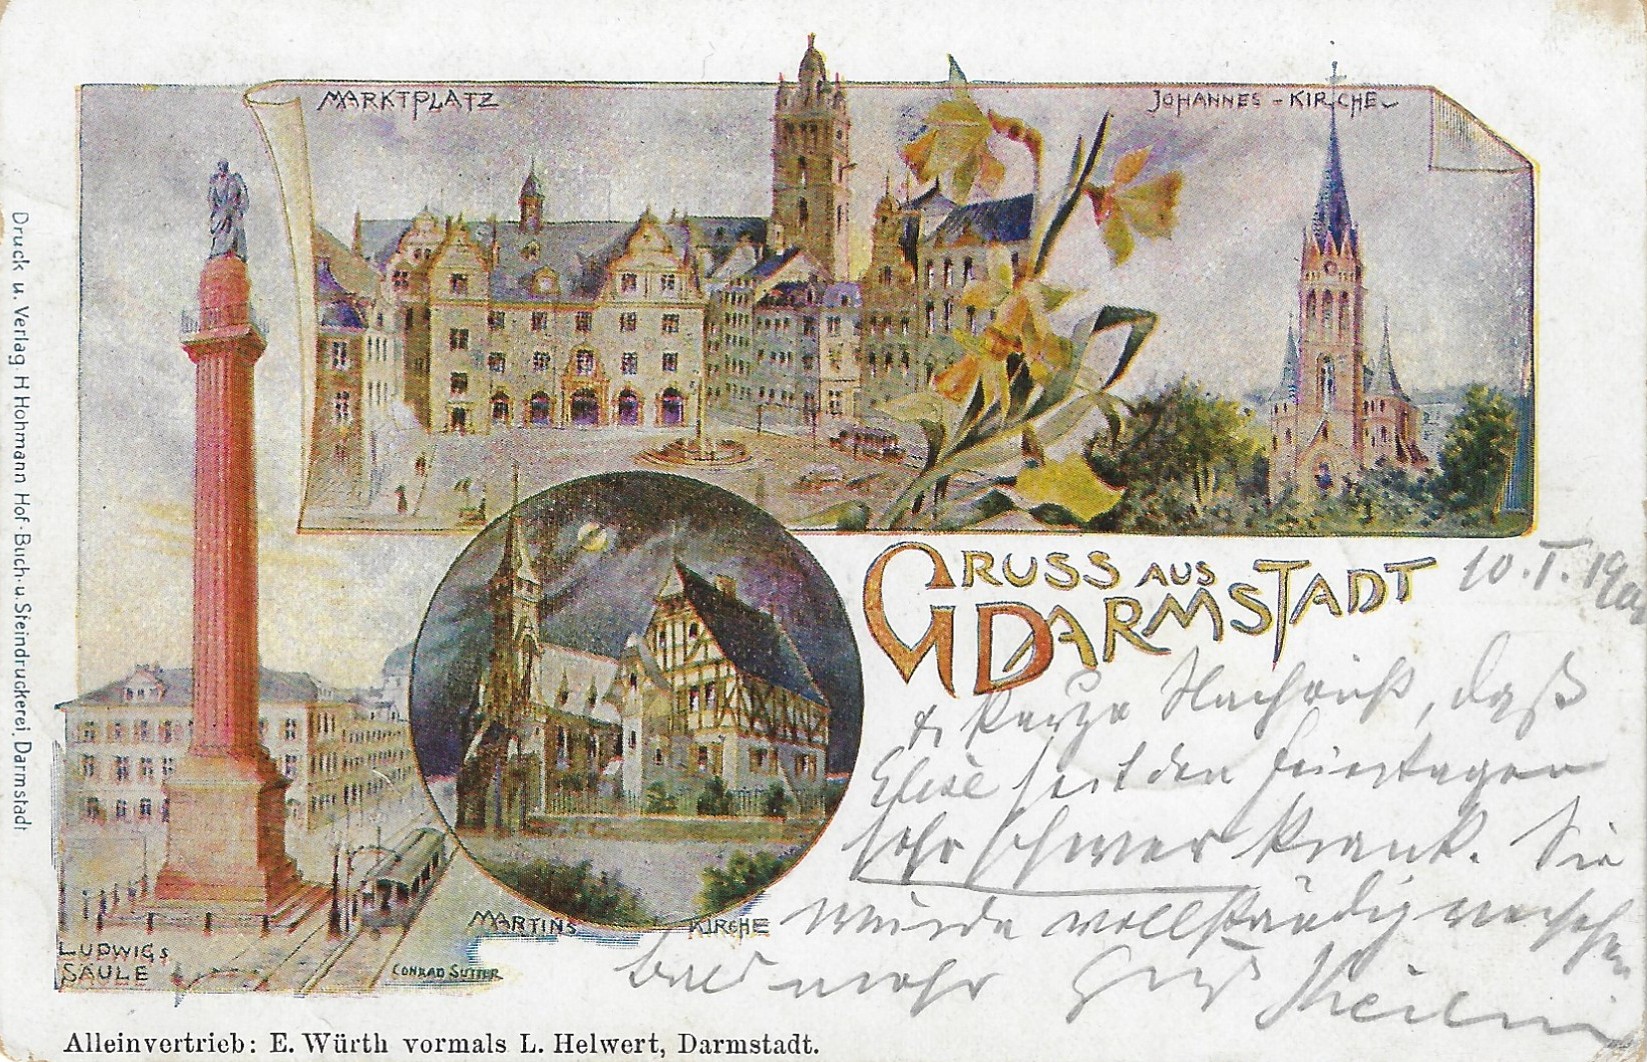 MARKTPLATZ
JOHANNES - KIRCHE
GRUSS AUS
DARMSTADT
10. I. 19
kurze Nachricht, daß
Elise seit den Feiertagen
sehr schwer krank. Sie
wurde vollständig versehen
bald mehr Gruß
MARTINS KIRCHE
LUDWIGS
SÄULE
CONRAD SUTTER
Druck u. Verlag H Hohmann Hof-Buch-u. Steindruckerei, Darmstadt
Alleinvertrieb: E. Würth vormals L. Helwert, Darmstadt.